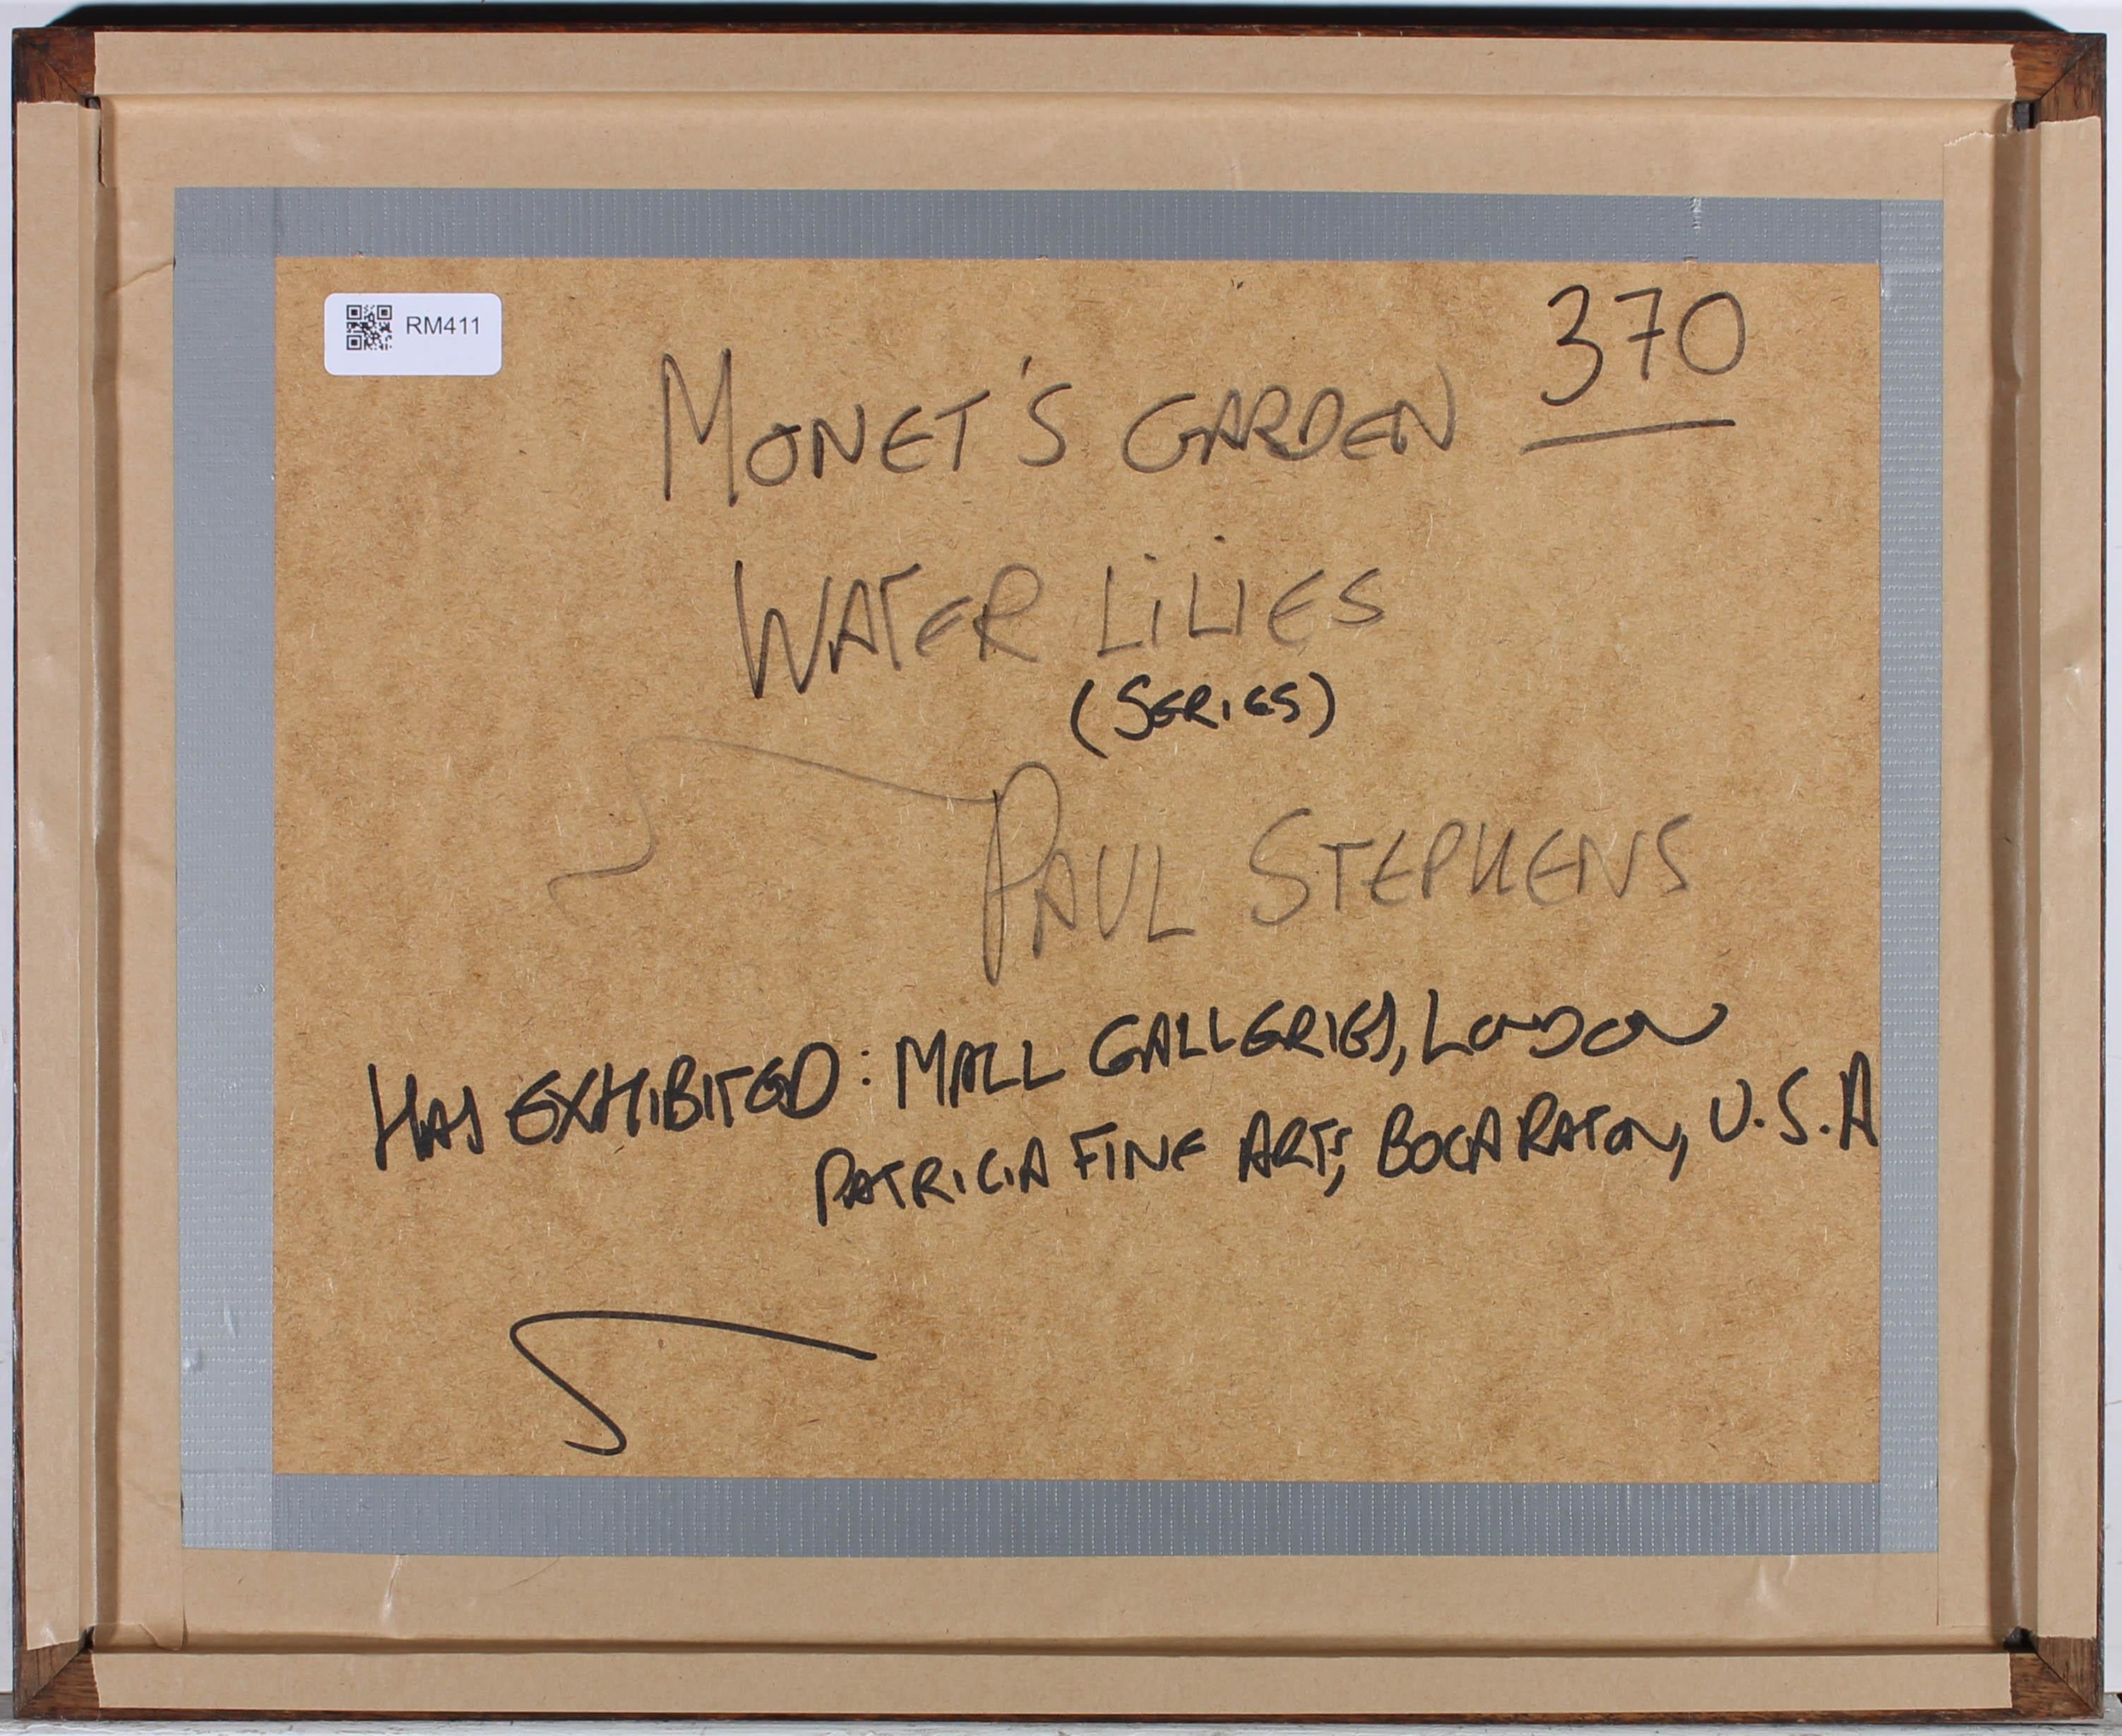 RM411
370
MONET'S GARDEN
WATER LILIES
(SERIES)
PAUL STEPHENS
HAS EXHIBITED: MALL GALLERIES, LONDON
PATRICIA FINE ARTS, BOCA RATON, U.S.A